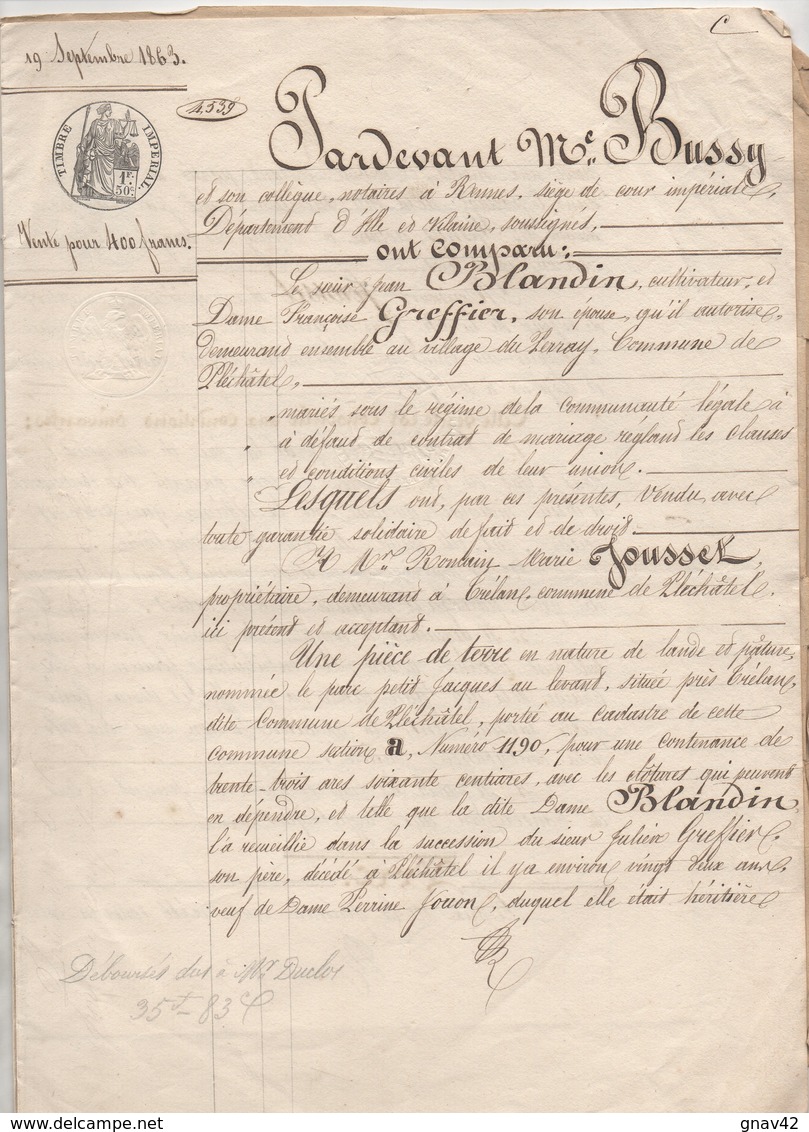 C
19 Septembre 1863.
4.539
TIMBRE IMPERIAL
1 F. 50 c.
Pardevant Me. Bussy
et son collègue, notaires à Rennes, siège de cour impériale,
Département d'Ille et Vilaine, soussignés,
Vente pour 400 francs.
ont comparu:
Le sieur Jean Blandin, cultivateur, et
Dame Françoise Greffier, son épouse, qu'il autorise,
demeurant ensemble au village du Perray, Commune de
Pléchâtel,
„ mariés sous le régime de la communauté légale à
„ à défaut de contrat de mariage réglant les clauses
„ et conditions civiles de leur union.
Lesquels ont, par ces présentes, vendu avec
toute garantie solidaire de fait et de droit
A Mr. Romain Marie Jousset,
propriétaire, demeurant à Trélan, commune de Pléchâtel,
ici présent et acceptant.
Une pièce de terre en nature de lande et pâture,
nommée le parc petit Jacques au levant, située près Trélan,
dite Commune de Pléchâtel, portée au Cadastre de cette
commune section a, Numéro 1190, pour une contenance de
trente-trois ares soixante centiares, avec les clôtures qui peuvent
en dépendre, et telle que la dite Dame Blandin
l'a recueillie dans la succession du sieur Julien Greffier,
son père, décédé à Pléchâtel il y a environ vingt deux ans,
veuf de Dame Perrine Jouon, duquel elle était héritière
Déboursés dus à Mr Duclos
35f - 83c
delcampe.net
gnav42